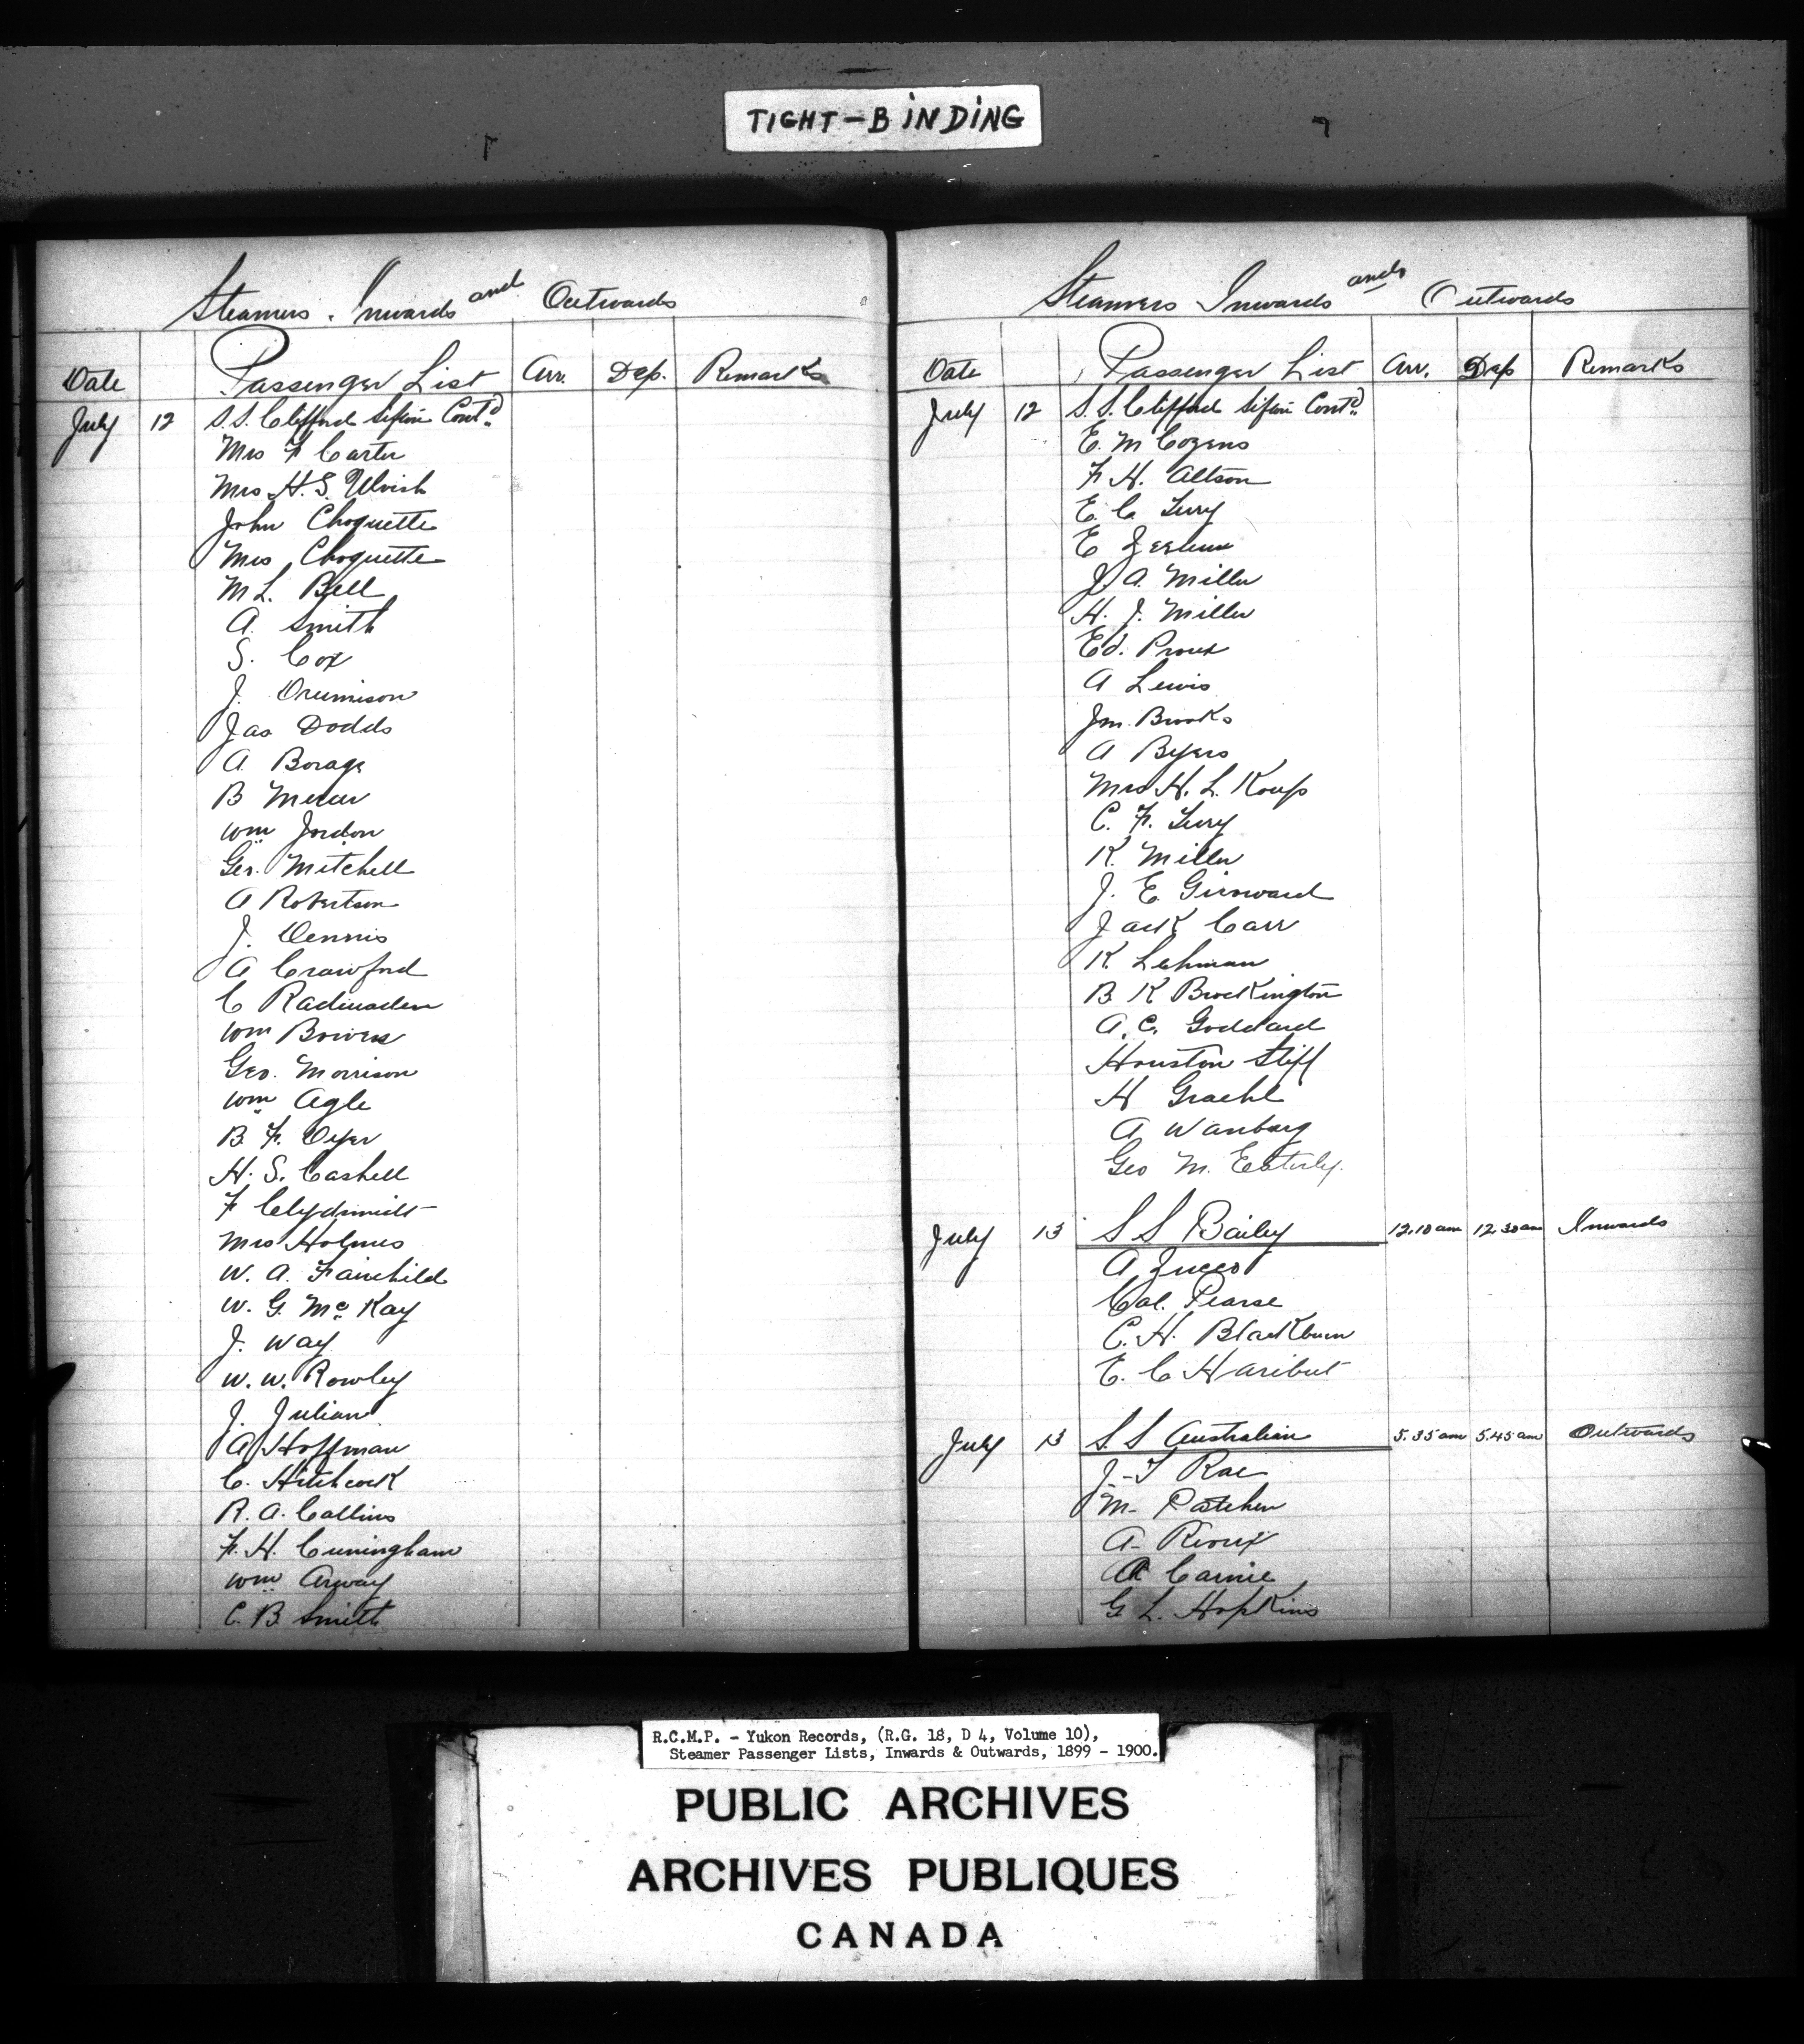 TIGHT-BINDING
Steamers Inwards and Outwards
Date Passenger List Arr. Dep. Remarks
July 12 S.S. Clifford Sifton Contd.
Mrs F Carter
Mrs H. S.
John Choquette
Mrs Choquette
M L. Bell
A. Smith
S. Cox
J. Drumison
Jas Dodds
A Borage
B Mercer
Wm Jordon
Geo. Mitchell
A Robertson
J. Dennis
A Crawford
C
Wm Bowers
Geo. Morrison
Wm Agle
B. F. Dyer
H. S. Cashell
F
Mrs Holmes
W. A. Fairchild
W. G. Mc Kay
J. Way
W. W. Rowley
J. Julian
A Hoffman
C. Hitchcock
R. A. Collins
F. H. Cuningham
Wm Arway
C. B. Smith
Steamers Inwards and Outwards
Date Passenger List Arr. Dep Remarks
July 12 S.S. Clifford Sifton Contd.
E. M Cozens
F H. Altson
E. C.
E
J. A. Miller
H. J. Miller
Ed. Proux
A Lewis
Jm. Brooks
A Byers
Mrs H. L. Koups
C. F.
K. Miller
J. E. Girouard
Jack Carr
K. Lehman
B K Brockington
A. C. Goddard
Houston Stiff
H Graehl
A Wanburg
Geo M. Esterly.
July 13 S S Bailey 12.10 am 12.30 am Inwards
A Zucco
Cal. Pearse
C. H. Blackburn
E. C Haribut
July 13 S. S Australian 5.35 am 5.45 am Outwards
J-T Rae
M- Patchen
A- Rioux
A Carnie
G L. Hopkins
R.C.M.P. - Yukon Records, (R.G. 18, D 4, Volume 10),
Steamer Passenger Lists, Inwards & Outwards, 1899 - 1900.
PUBLIC ARCHIVES
ARCHIVES PUBLIQUES
CANADA